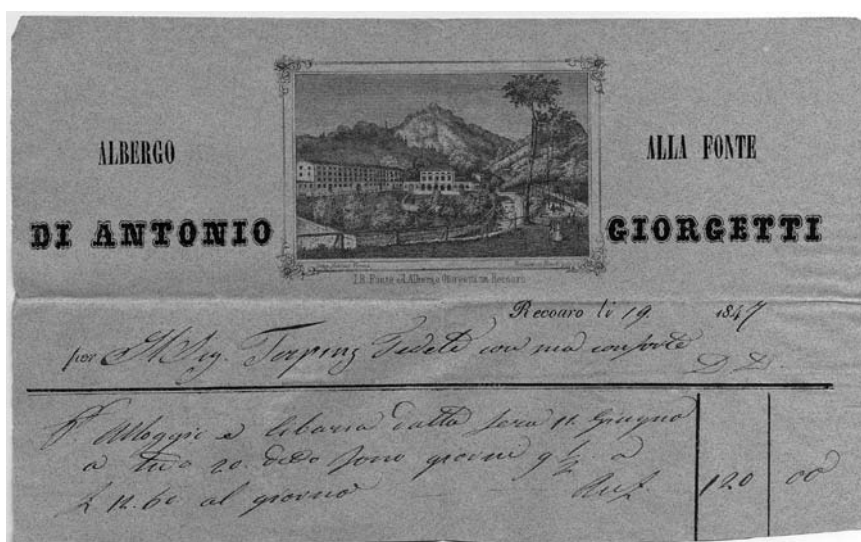 ALBERGO
ALLA FONTE
DI ANTONIO
GIORGETTI
I.R. Fonte ed Albergo Giorgetti in Recoaro
Recoaro li 19. 1847
per Il Sig. Fedele con sua consorte
P. Alloggio e Cibaria dalla sera 11. Giugno
a tutto 20. detto sono giorni 9 1/2 a
£ 12.60 al giorno
120 00